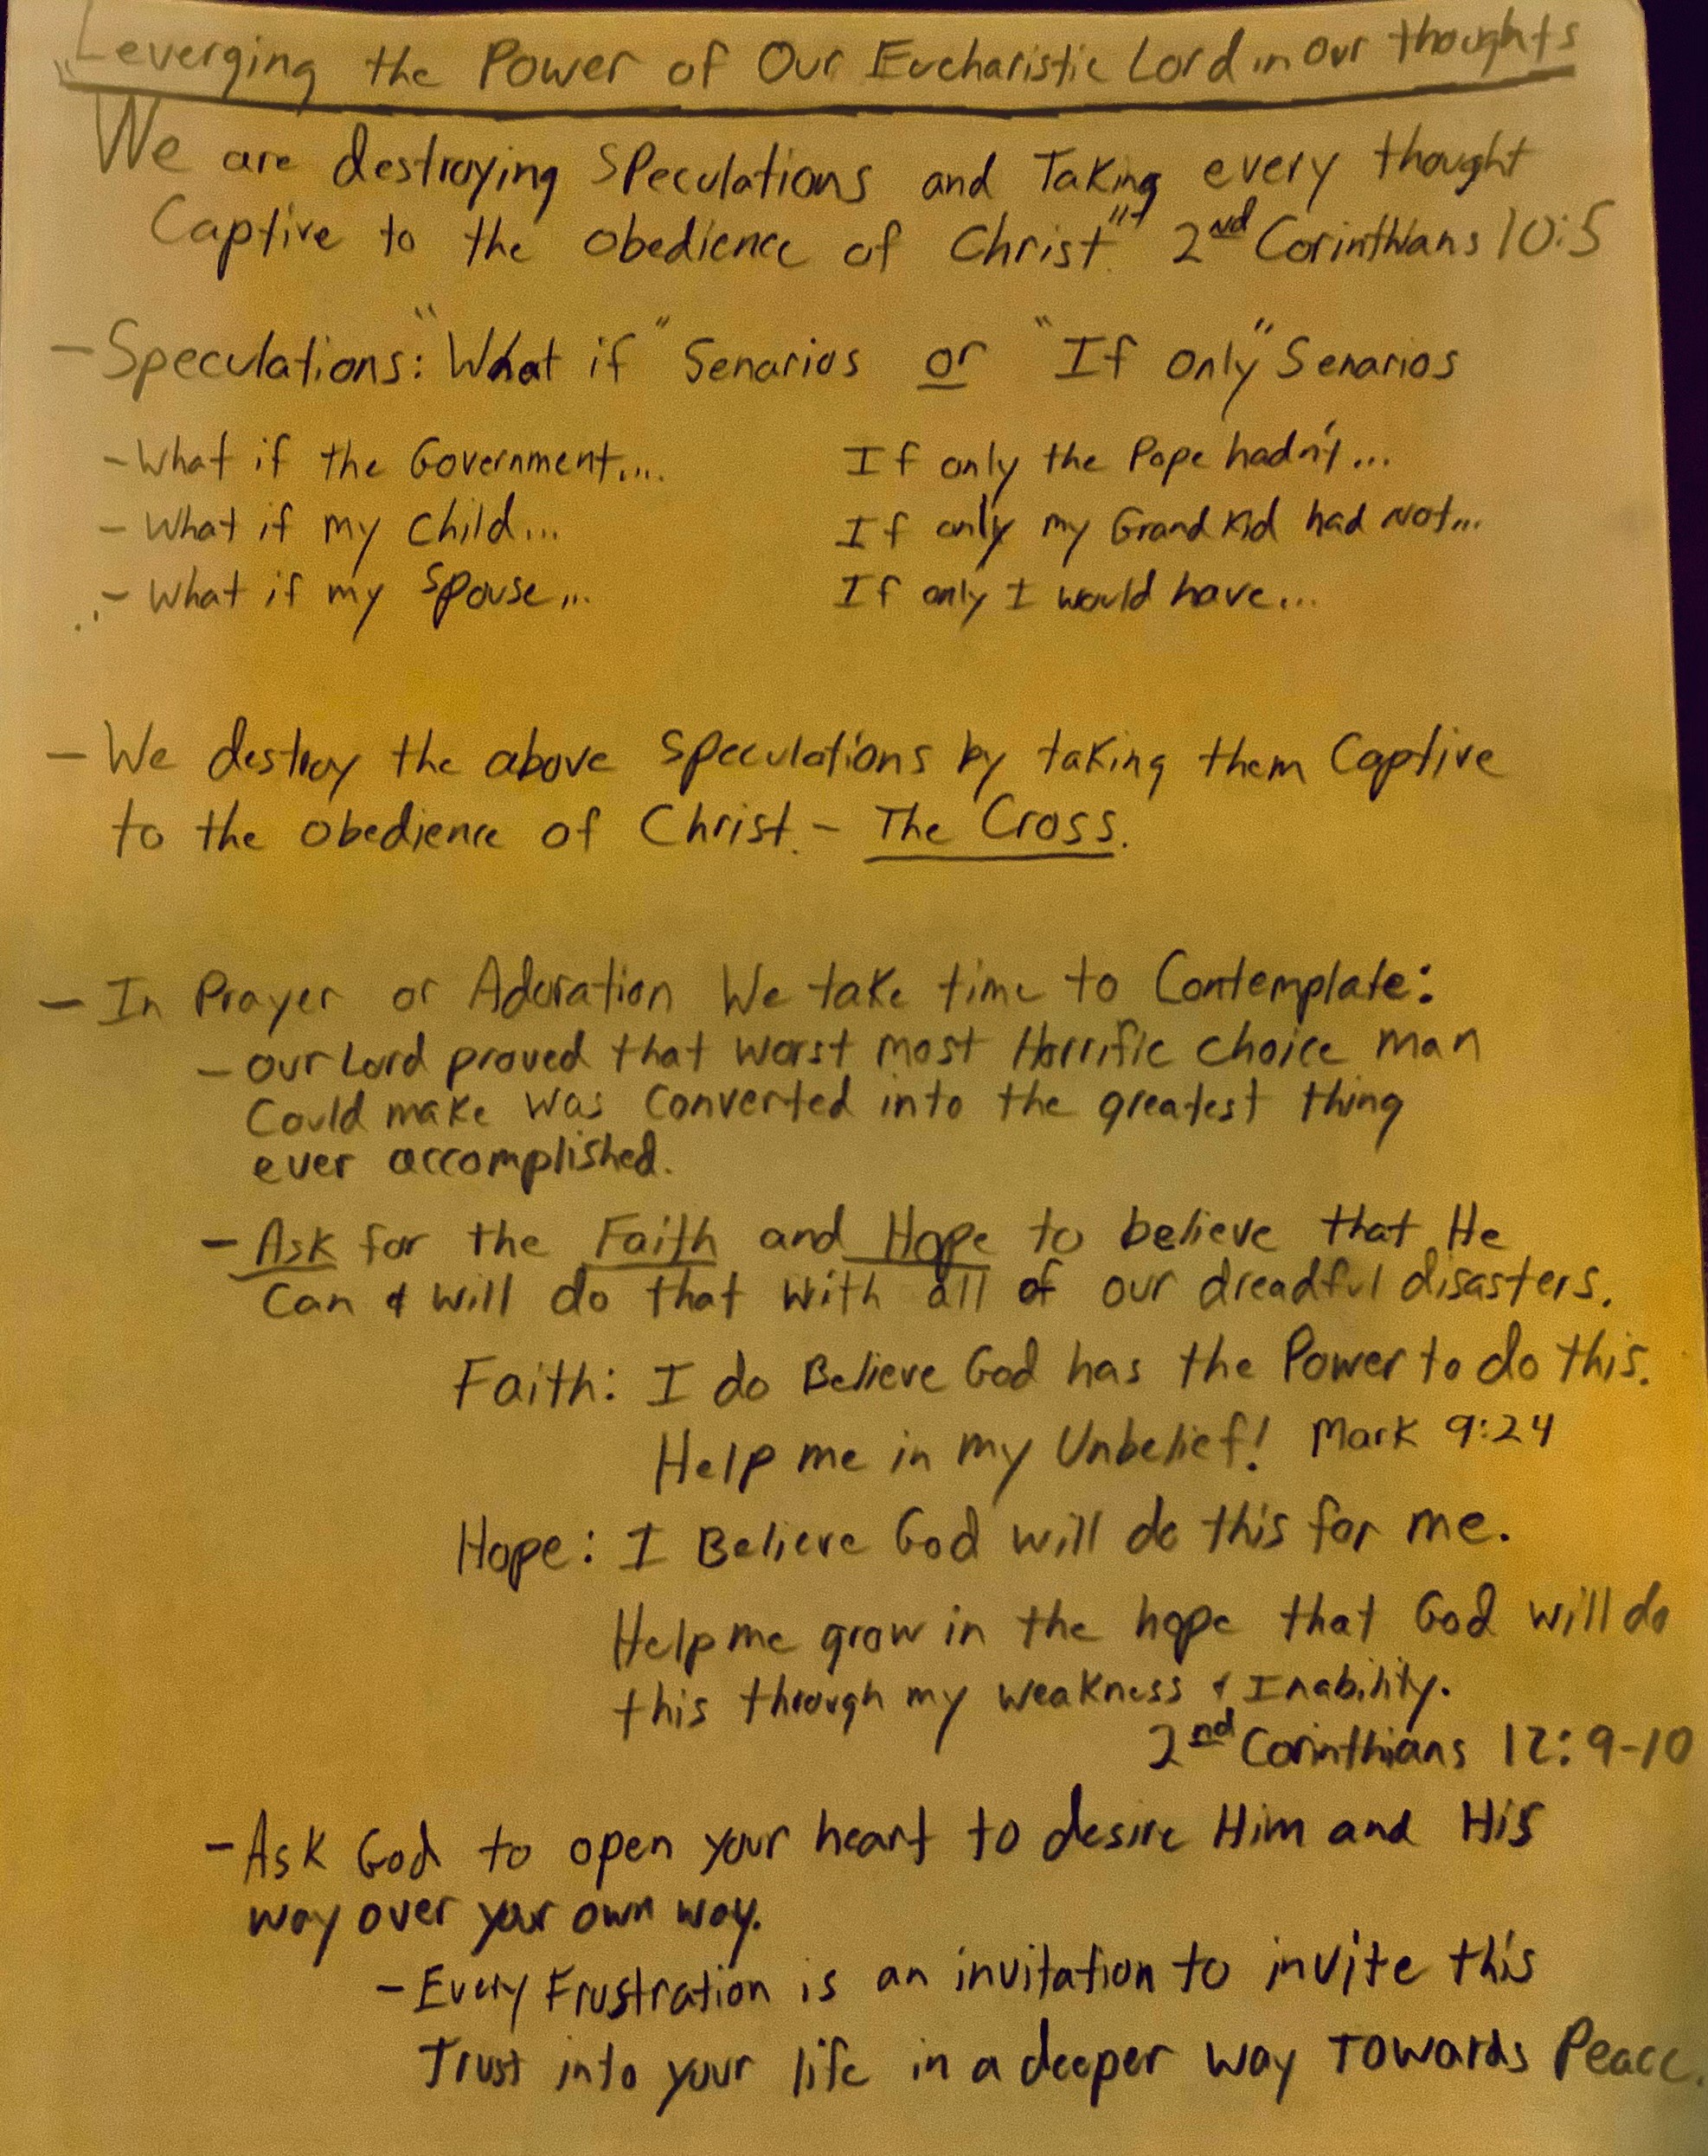 Leverging the Power of Our Eucharistic Lord in our thoughts
"We are destroying Speculations and Taking every thought
Captive to the obedience of Christ." 2nd Corinthians 10:5
- Speculations: "What if" Senarios or "If only" Senarios
- What if the Government.... If only the Pope hadn't...
- What if my child... If only my Grand Kid had not...
- What if my Spouse... If only I would have...
- We destroy the above speculations by taking them Captive
to the obedience of Christ. - The Cross.
- In Prayer or Adoration We take time to Contemplate:
- Our Lord proved that worst most Horrific choice man
Could make was converted into the greatest thing
ever accomplished.
- Ask for the Faith and Hope to believe that He
Can & will do that with all of our dreadful disasters.
Faith: I do Believe God has the Power to do this.
Help me in my Unbelief! Mark 9:24
Hope: I Believe God will do this for me.
Help me grow in the hope that God will do
this through my weakness & Inability.
2nd Corinthians 12:9-10
- Ask God to open your heart to desire Him and His
way over your own way.
- Every Frustration is an invitation to invite this
Trust into your life in a deeper way Towards Peace.